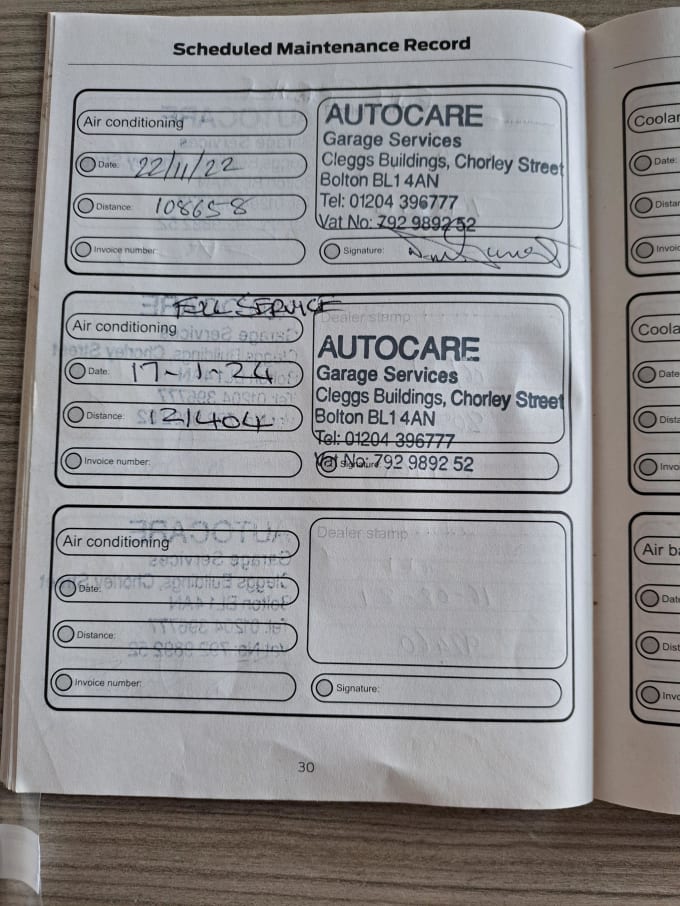 Scheduled Maintenance Record
Air conditioning
Date: 22/11/22
Distance: 108658
Invoice number:
AUTOCARE
Garage Services
Cleggs Buildings, Chorley Street
Bolton BL1 4AN
Tel: 01204 396777
Vat No: 792 9892 52
Signature:
FULL SERVICE
Air conditioning
Date: 17-1-24
Distance: 121404
Invoice number:
Dealer stamp
AUTOCARE
Garage Services
Cleggs Buildings, Chorley Street
Bolton BL1 4AN
Tel: 01204 396777
Vat No: 792 9892 52
Signature:
Air conditioning
Date:
Distance:
Invoice number:
Dealer stamp
Signature:
30
Coolar
Date:
Distar
Invoic
Coola
Date
Dista
Invo
Air ba
Dat
Dist
Invo